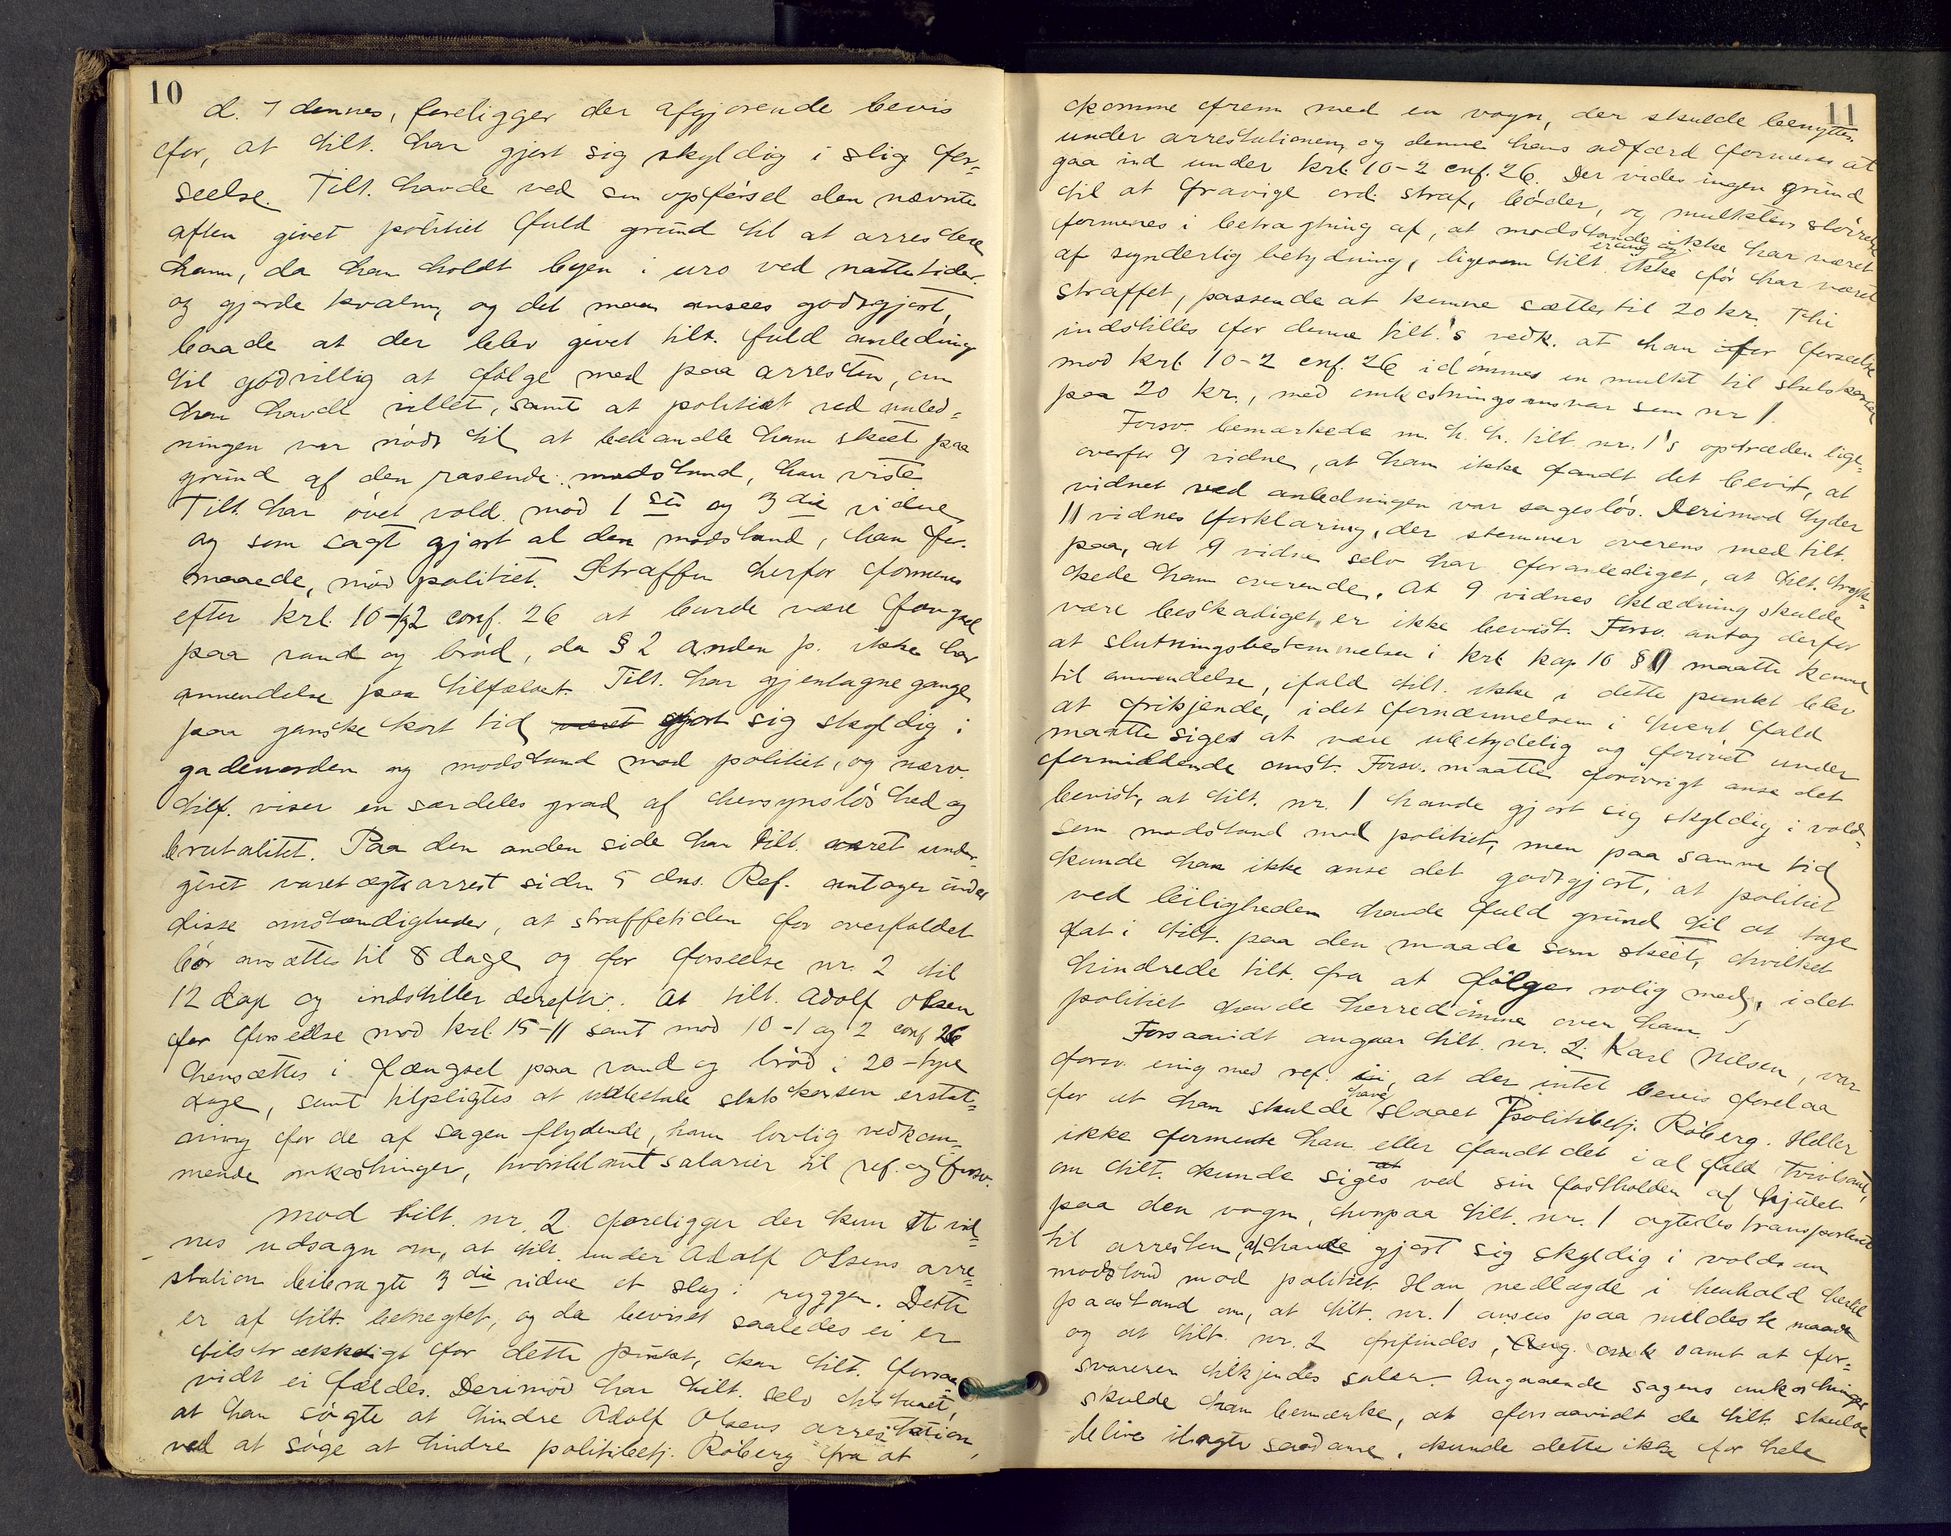 10
d. 7 dennes, foreligger der afgjørende bevis
for, at tilt. har gjort sig skyldig i slig for-
seelse. Tilt. havde ved sin opførsel den nævnte
aften givet politiet fuld grund til at arrestere
ham, da han holdt byen i uro ved nattetider
og gjorde kvalm, og det maa ansees godtgjort,
baade at der blev givet tilt. fuld anledning
til godvillig at følge med paa arresten, om
han havde villet, samt at politiet ved anled-
ningen var nødt til at behandle ham skeet paa
grund af den rasende modstand, han viste.
Tilt. har øvet vold mod 1ste og 3die vidne
og som sagt gjort al den modstand, han for-
maaede, mod politiet. Straffen herfor formenes
efter krl. 10-2 conf. 26 at burde være fængsel
paa vand og brød, da § 2 anden p. ikke har
anvendelse paa tilfældet. Tilt. har gjentagne gange
paa ganske kort tid været gjort sig skyldig i
gadeuorden og modstand mod politiet, og nærv.
tilf. viser en særdeles grad af hensynsløshed og
brutalitet. Paa den anden side har tilt. været under-
givet varetægtsarrest siden 5 dns. Ref. antager under
disse omstændigheder, at straffetiden for overfaldet
bør ansættes til 8 dage og for forseelse nr. 2 til
12 dage og indstiller derefter: At tilt. Adolf Olsen
for forseelse mod krl. 15-11 samt mod 10-1 og 2 conf 26
hensættes i fængsel paa vand og brød i 20-tyve
dage, samt tilpligtes at udbetale statskassen erstat-
ning for de af sagen flydende, ham lovlig vedkom-
mende omkostninger, hvoriblant salærier til ref. og forsv.
Mod tilt. nr. 2 foreligger der kun et vid-
nes udsagn om, at tilt. under Adolf Olsens arre-
station bibragte 3die vidne et slag i ryggen. Dette
er af tilt. benegtet, og da beviset saaledes ei er
tilstrækkeligt for dette punkt, kan tilt. forsaa-
vidt ei fældes. Derimod har tilt. selv tilstaaet,
at han søgte at hindre Adolf Olsens arrestation,
ved at søge at hindre politibetj. Røberg fra at
11
komme frem med en vogn, der skulde benyttes
under arrestationen, og denne hans adfærd formenes at
gaa ind under krl. 10-2 cnf. 26. Der vides ingen grund
til at fravige ord. straf, bøder, og mulktens størrelse
formenes i betragtning af, at modstande ikke har været
af synderlig betydning, ligesom tilt. ikke før har været
straffet, passende at kunne sættes til 20 kr. Thi
indstilles for denne tilt.'s vedk. at han for forseelse
mod krl. 10-2 cnf. 26 idømmes en mulkt til statskassen
paa 20 kr., med omkostningsansvar som nr 1.
Forsv. bemærkede m. h. h. tilt. nr. 1's optræden lige-
overfor 9 vidne, at han ikke fandt det bevist, at
vidnet ved anledningen var sagesløs. Derimod tyder
11 vidnes forklaring, der stemmer overens med tilt.
paa, at 9 vidne selv har foranlediget, at tilt. tryk-
kede ham overende. At 9 vidnes klædning skulde
være beskadiget, er ikke bevist. Forsv. antog derfor
at slutningsbestemmelsen i krl. kap 16 § 11 maatte komme
til anvendelse, ifald tilt. ikke i dette punkt blev
at frikjende, idet fornærmelsen i hvert fald
maatte siges at være ubetydelig og forøvet under
formildende omst. Forsv. maatte forøvrigt anse det
bevist, at tilt. nr. 1 havde gjort sig skyldig i vold-
som modstand mod politiet, men paa samme tid
kunde han ikke anse det godtgjort, at politiet
ved leiligheden havde fuld grund til at tage
fat i tilt. paa den maade som skeet, hvilket
hindrede tilt. fra at følge rolig med, idet
politiet havde herredømme over ham.
Forsaavidt angaar tilt. nr. 2 Karl Nilsen, var
forsv. enig med ref. i, at der intet bevis forelaa
for at han skulde have slaaet Politibetj. Røberg. Heller
ikke formente han eller fandt det i al fald tvivlsomt,
om tilt. kunde siges ved sin fastholden af hjulet
paa den vogn, hvorpaa tilt. nr. 1 agtedes transporteret
til arresten, at have gjort sig skyldig i voldsom
modstand mod politiet. Han nedlagde i henhold hertil
paastand om, at tilt. nr. 1 ansees paa mildeste maade
og at tilt. nr. 2 frifindes, samt at for-
svareren tilkjendes salær. Angaaende sagens omkostninger
skulde han bemærke, at forsaavidt de tilt. skulde
blive ilagte saadanne, kunde dette ikke for hele